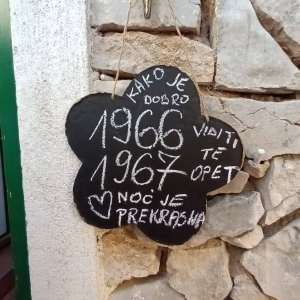 KAKO JE
DOBRO
1966
1967
VIDITI
TE
OPET
♡ NOĆ JE
PREKRASNA